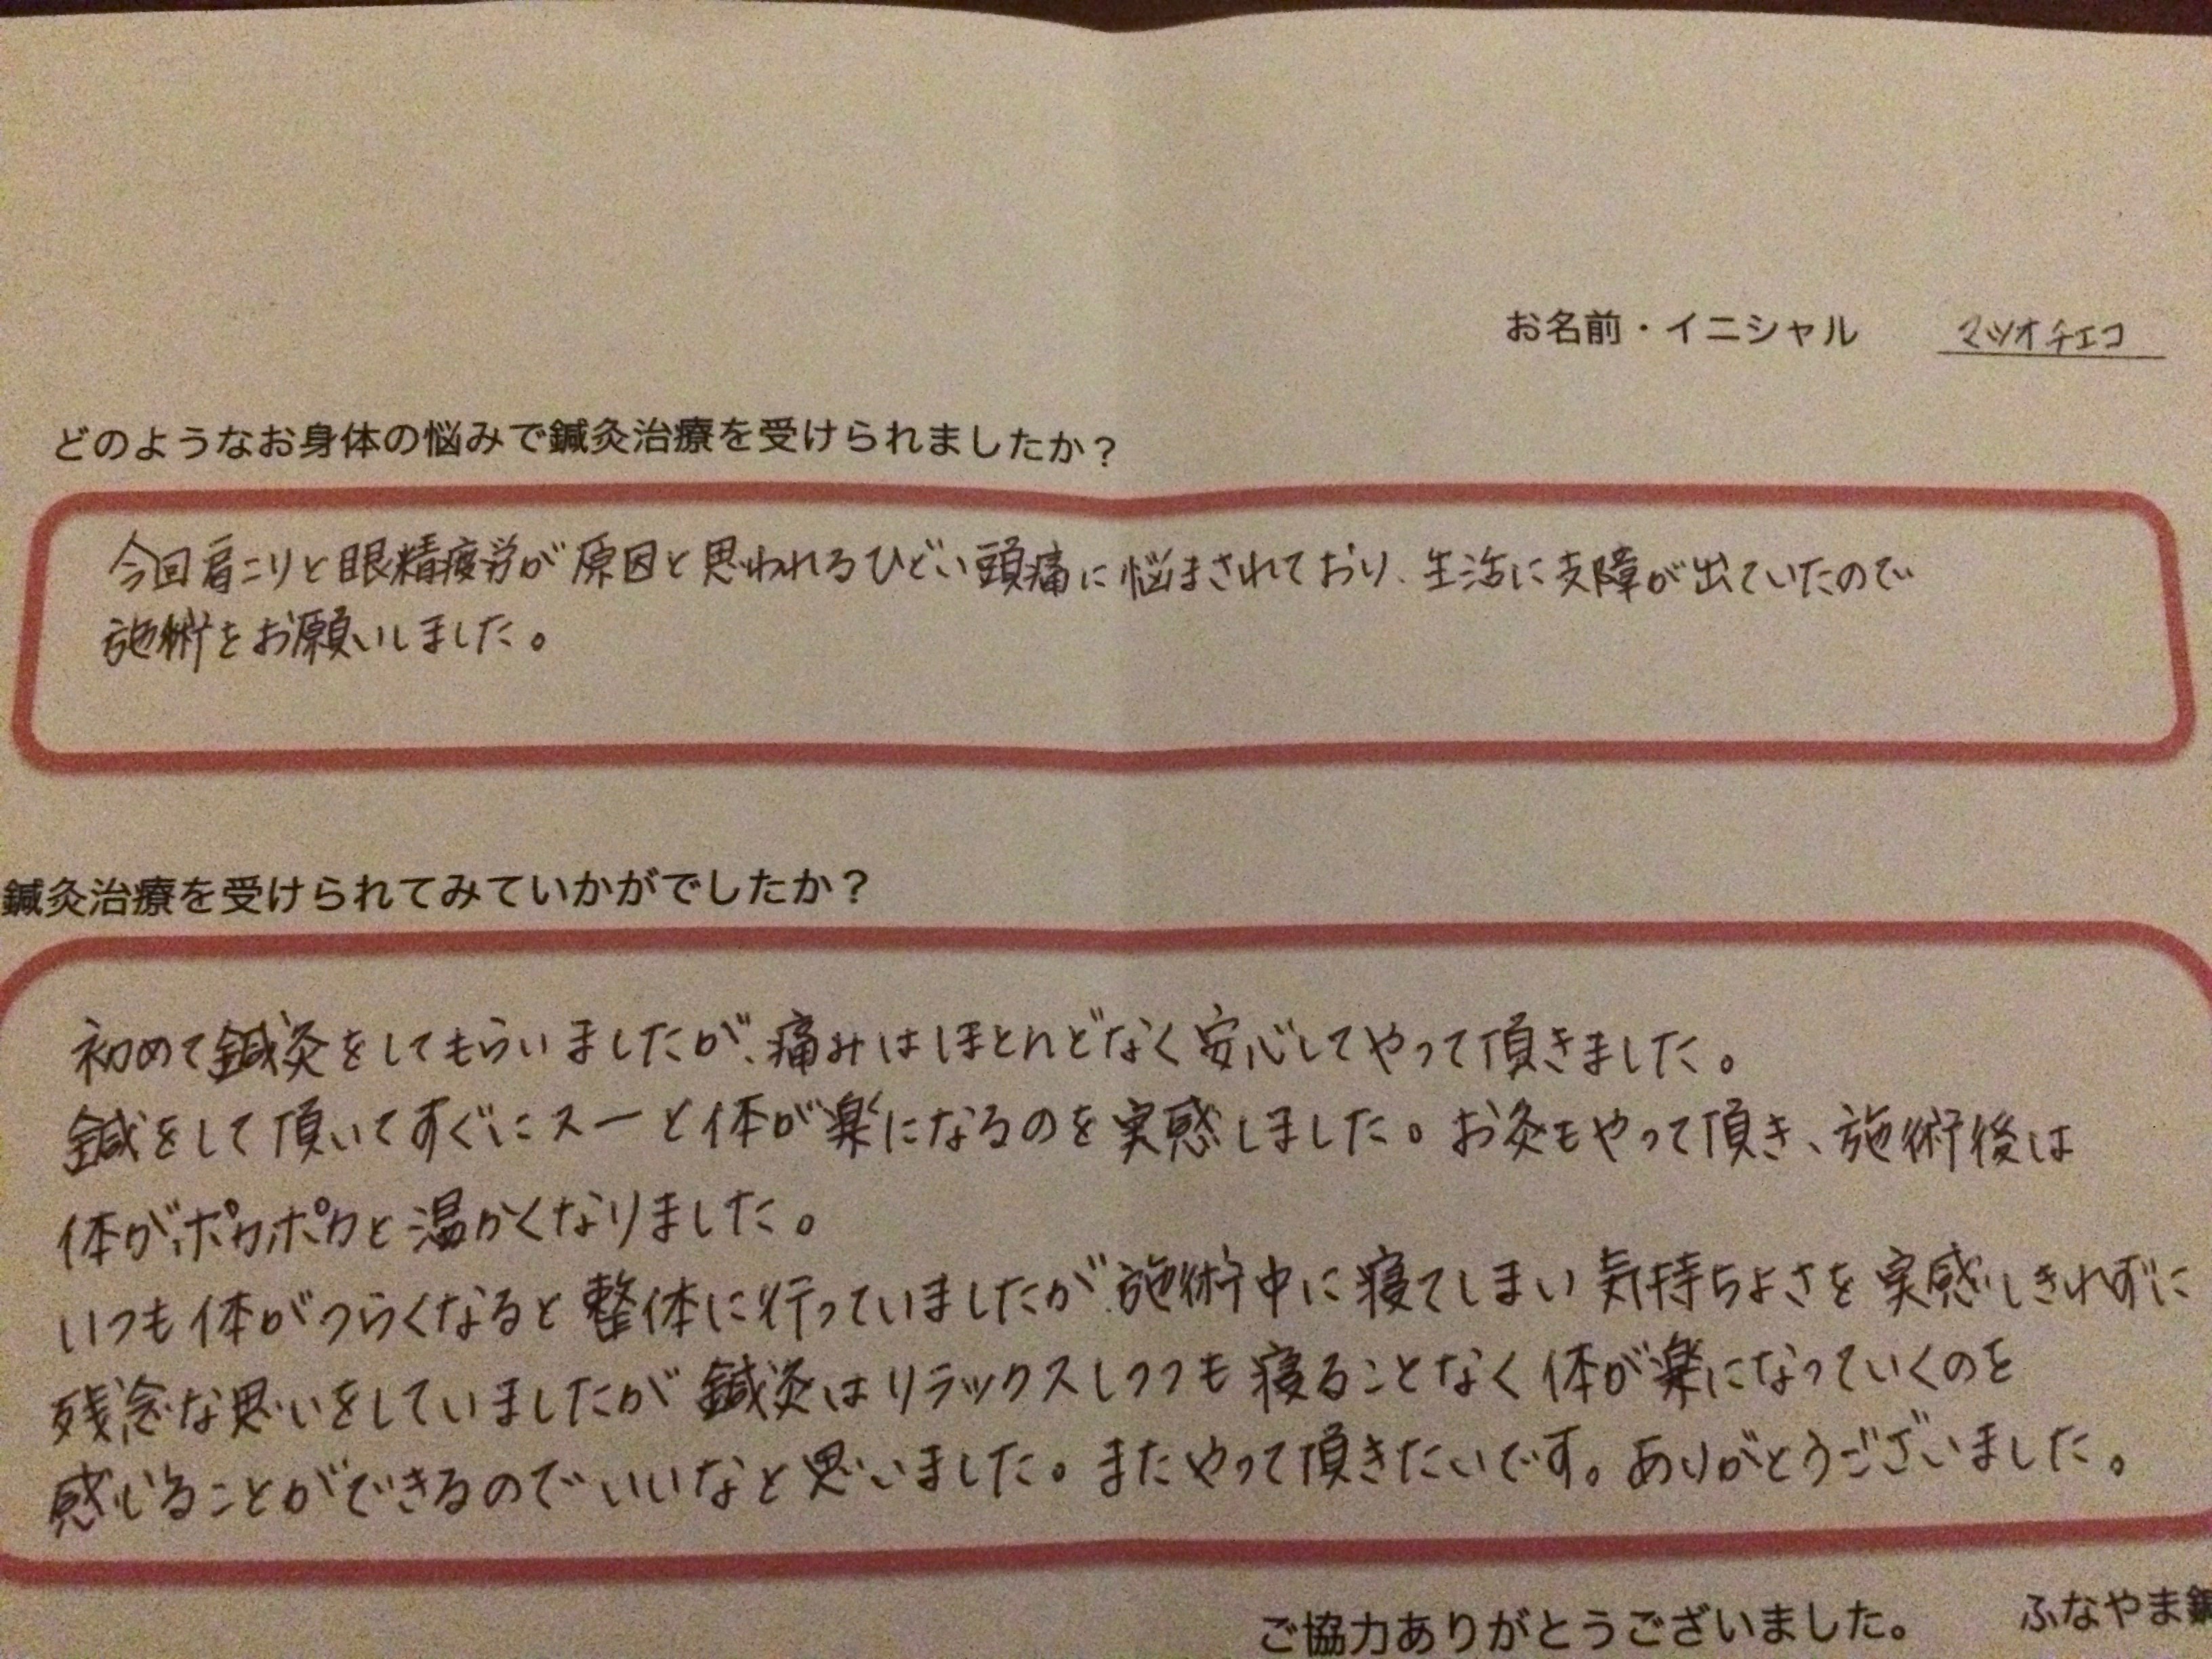 お名前・イニシャル　マツオチエコ
どのようなお身体の悩みで鍼灸治療を受けられましたか？
今回肩こりと眼精疲労が原因と思われるひどい頭痛に悩まされており、生活に支障が出ていたので
施術をお願いしました。
鍼灸治療を受けられてみていかがでしたか？
初めて鍼灸をしてもらいましたが、痛みはほとんどなく安心してやって頂きました。
鍼をして頂いてすぐにスーと体が楽になるのを実感しました。お灸もやって頂き、施術後は
体がポカポカと温かくなりました。
いつも体がつらくなると整体に行っていましたが、施術中に寝てしまい気持ちよさを実感しきれずに
残念な思いをしていましたが鍼灸はリラックスしつつも寝ることなく体が楽になっていくのを
感じることができるのでいいなと思いました。またやって頂きたいです。ありがとうございました。
ご協力ありがとうございました。　ふなやま鍼